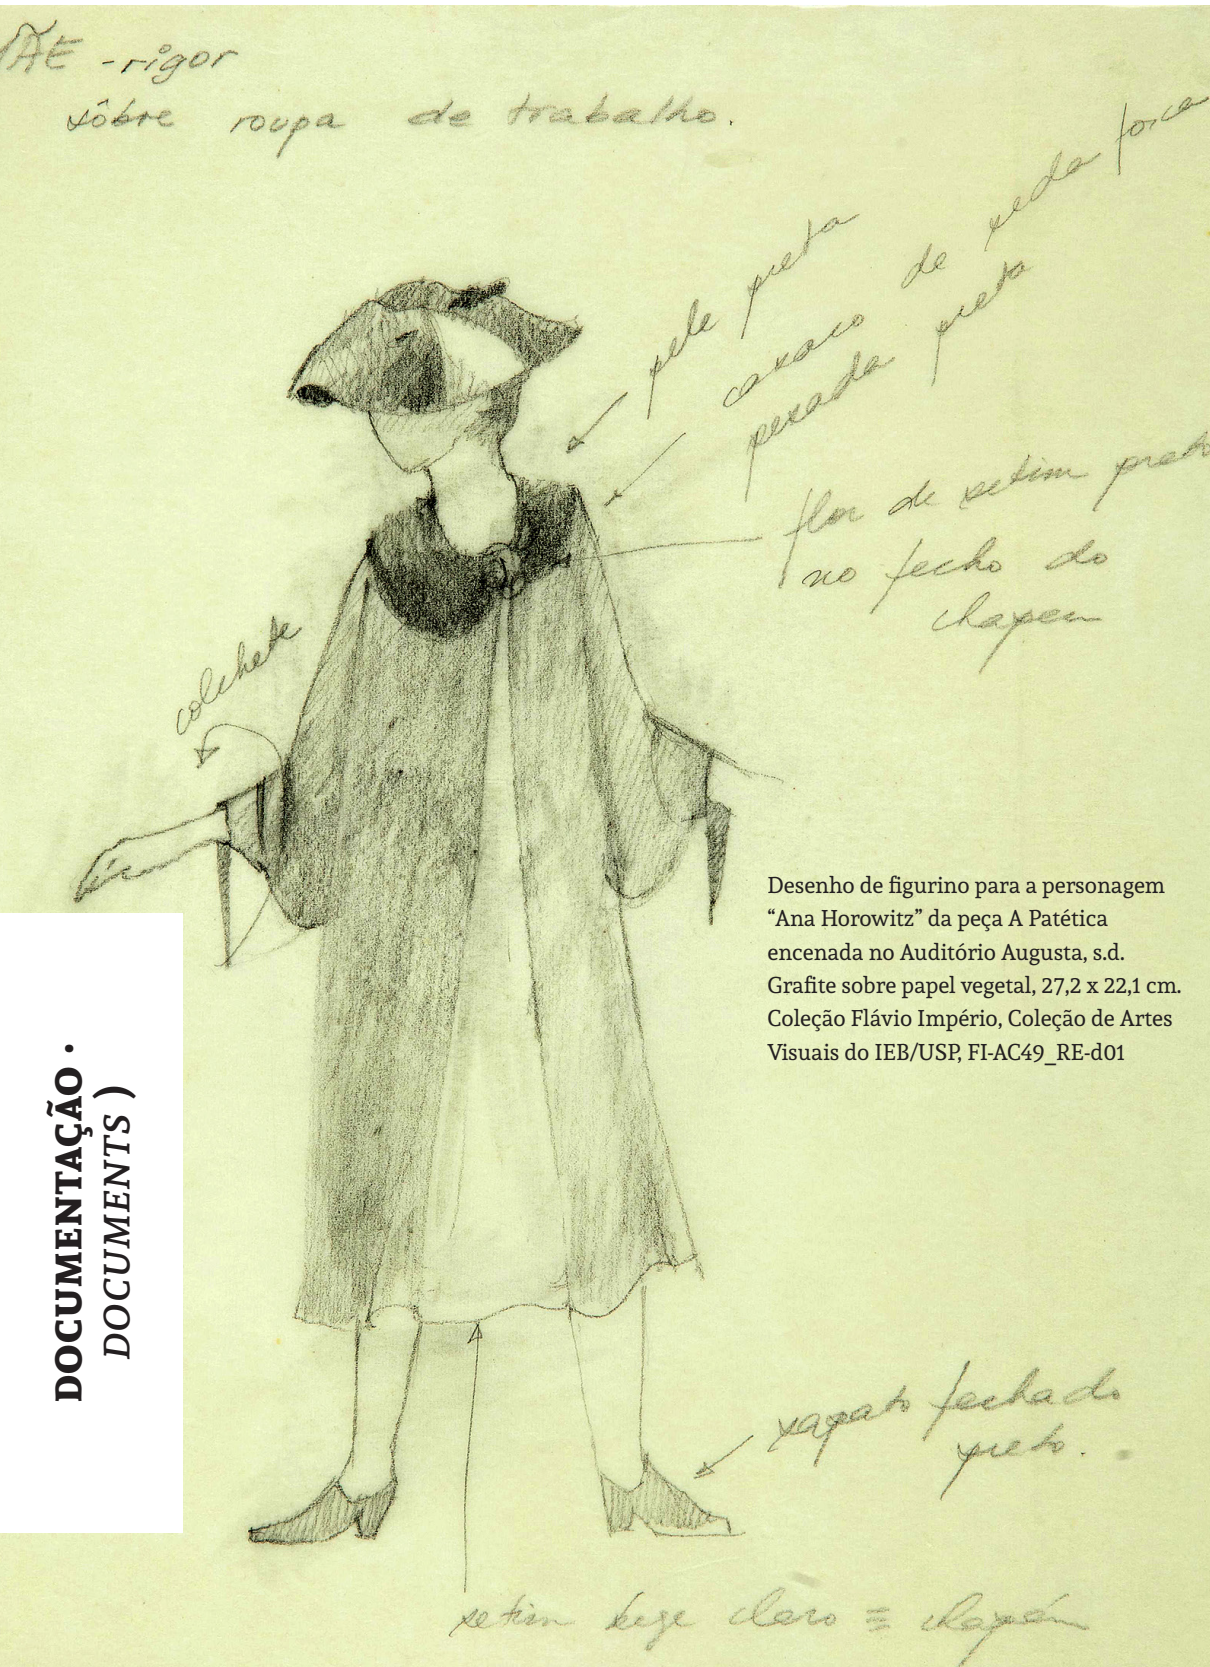 MÃE - rigor
sôbre roupa de trabalho.
pele preta
casaco de seda fosca
pesada preta
flor de setim preto
no fecho do
chapeu
colchete
Desenho de figurino para a personagem
“Ana Horowitz” da peça A Patética
encenada no Auditório Augusta, s.d.
Grafite sobre papel vegetal, 27,2 x 22,1 cm.
Coleção Flávio Império, Coleção de Artes
Visuais do IEB/USP, FI-AC49_RE-d01
DOCUMENTAÇÃO •
DOCUMENTS )
sapato fechado
preto.
setim bege claro ≡ chapéu